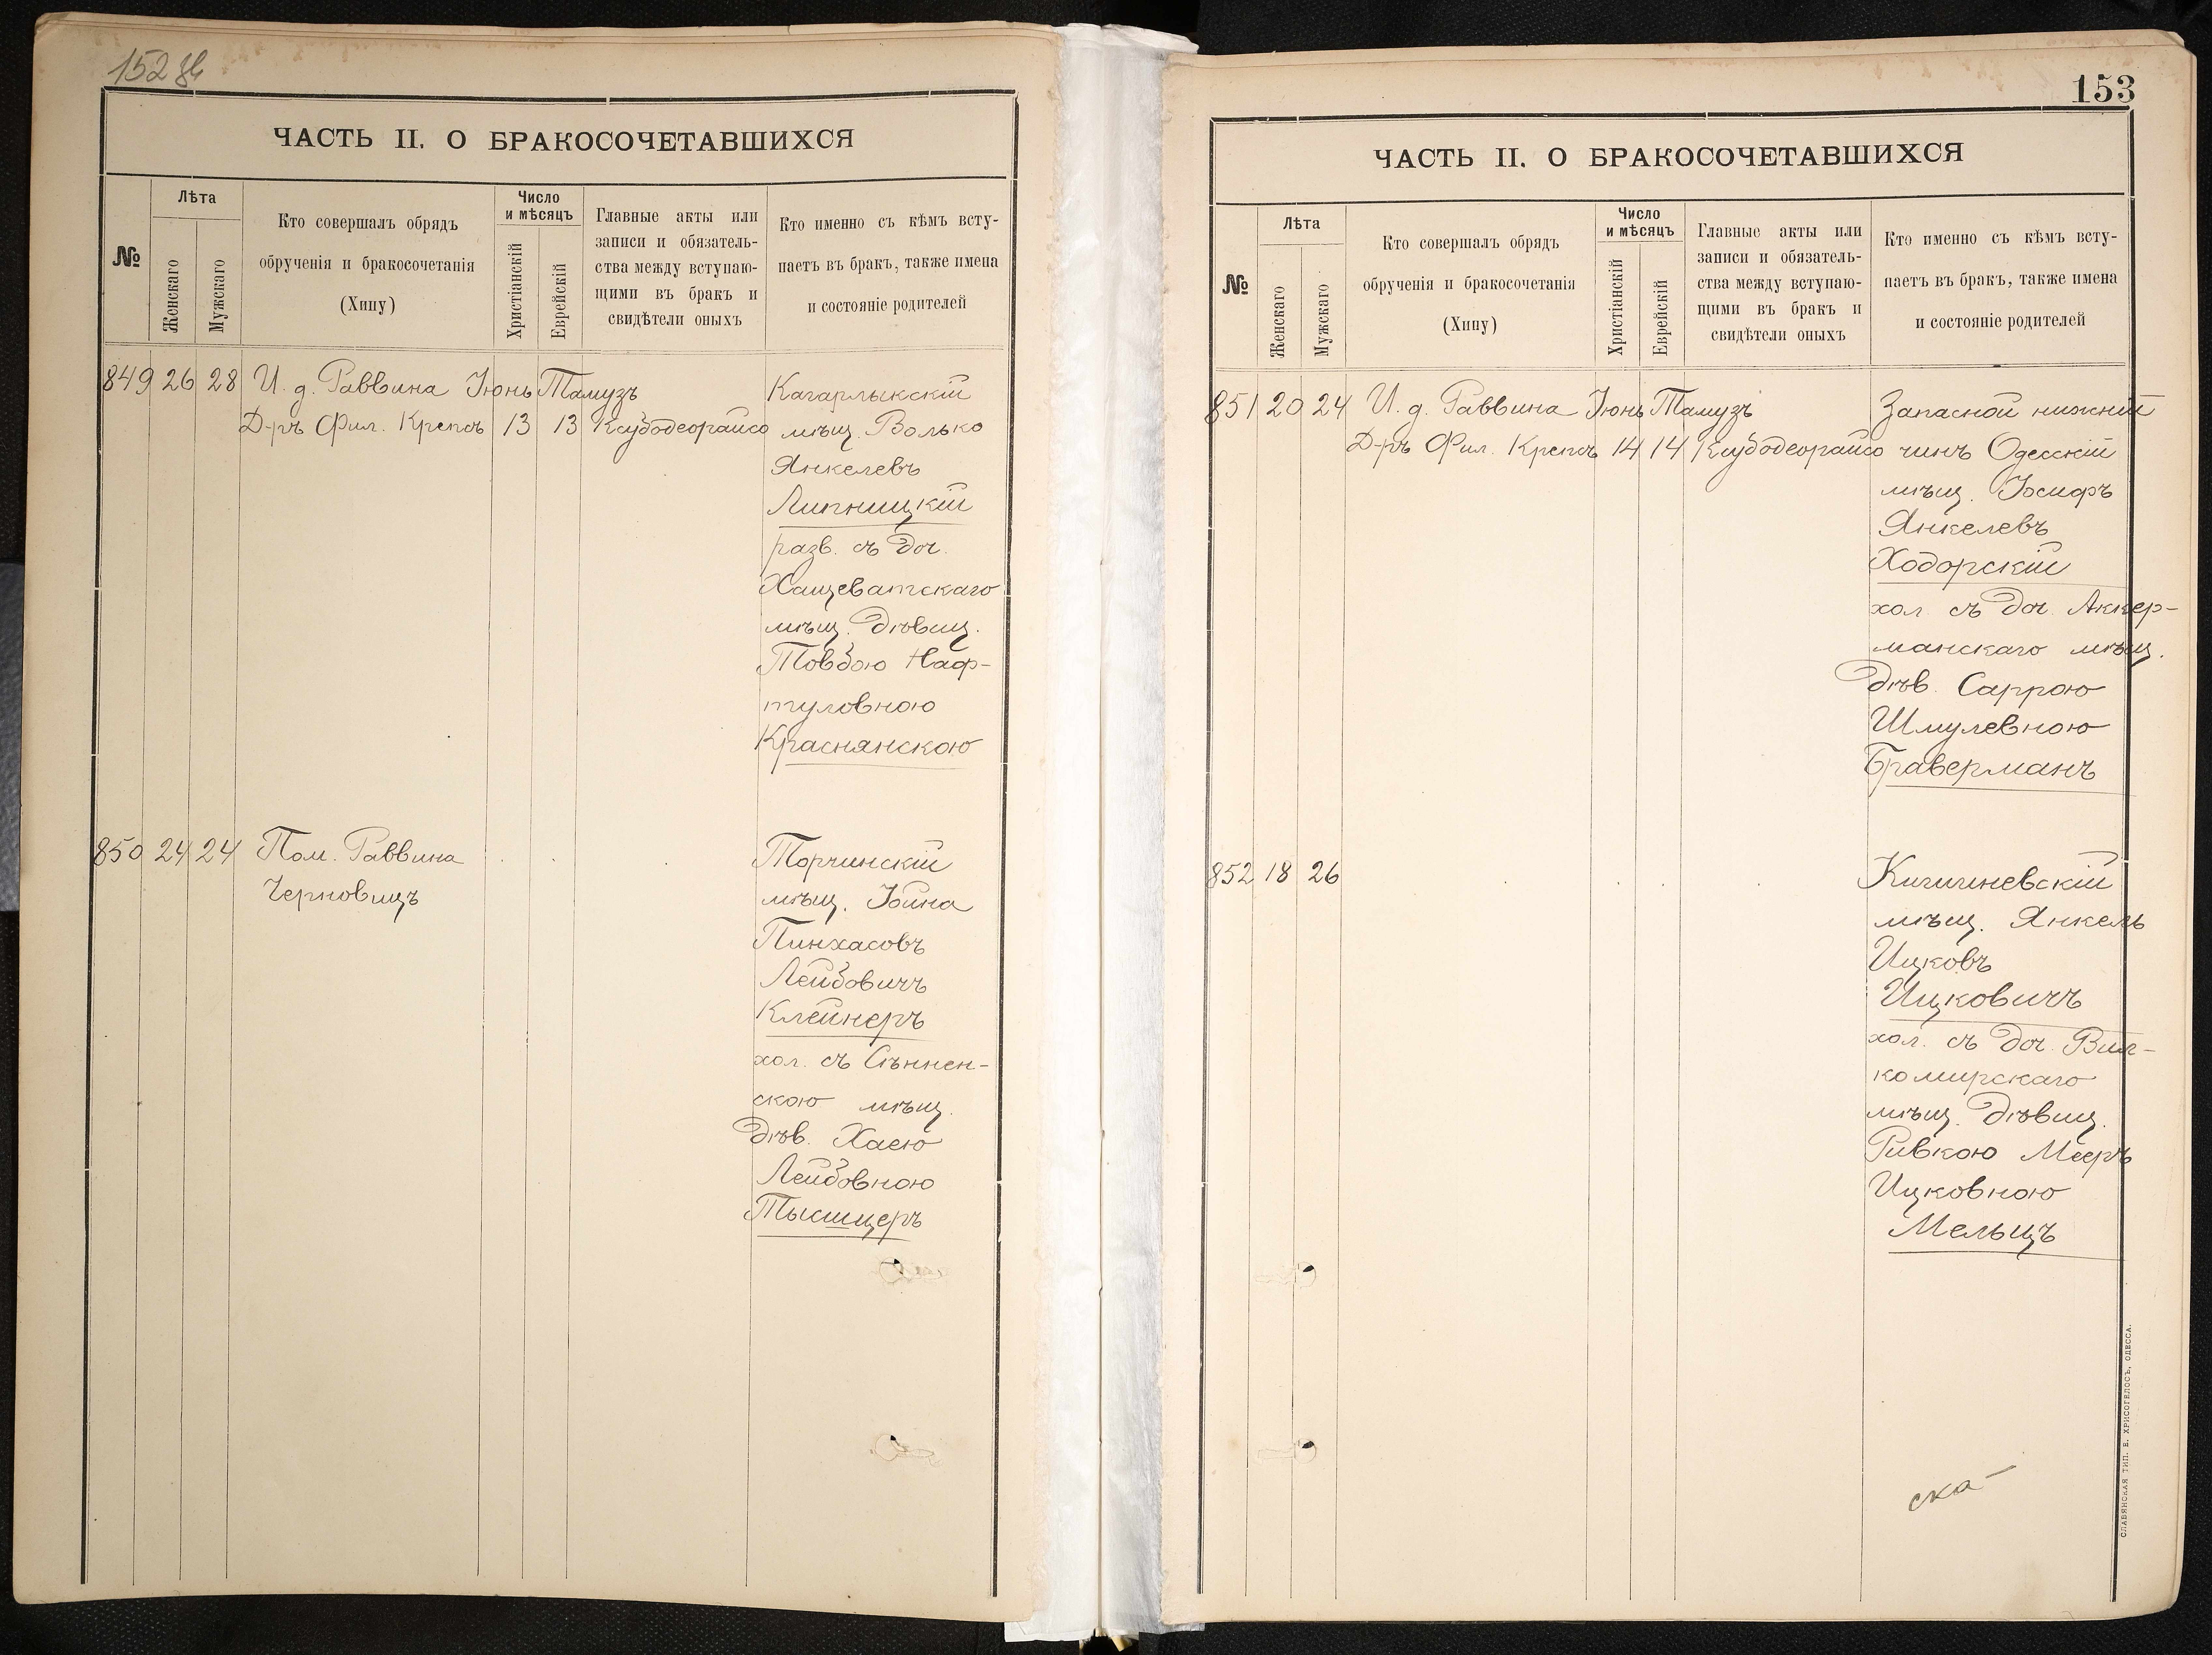 152 зв
ЧАСТЬ II. О БРАКОСОЧЕТАВШИХСЯ
№
Лѣта
Женскаго
Мужскаго
Кто совершалъ обрядъ
обрученія и бракосочетанія
(Хипу)
Число
и мѣсяцъ
Христіанскій
Еврейскій
Главные акты или
записи и обязатель-
ства между вступаю-
щими въ бракъ и
свидѣтели оныхъ
Кто именно съ кѣмъ всту-
паетъ въ бракъ, также имена
и состояніе родителей
849 26 28 И. д. Раввина Іюнь Тамузъ Кагарлыкскій
Д-ръ Фил. Крепсъ 13 13 Ксубодеорайсо мѣщ. Волько
Янкелевъ
Липницкій
разв. съ доч.
Хащеватскаго
мѣщ. дѣвиц.
Товбою Наф-
туловною
Краснянскою
850 24 24 Пом. Раввина Торчинскій
Черновицъ мѣщ. Іойна
Пинхасовъ
Лейбовичъ
Клейнеръ
хол. съ Сѣннен-
скою мѣщ.
дѣв. Хаею
Лейбовною
Тыкшцеръ
153
ЧАСТЬ II. О БРАКОСОЧЕТАВШИХСЯ
№
Лѣта
Женскаго
Мужскаго
Кто совершалъ обрядъ
обрученія и бракосочетанія
(Хипу)
Число
и мѣсяцъ
Христіанскій
Еврейскій
Главные акты или
записи и обязатель-
ства между вступаю-
щими въ бракъ и
свидѣтели оныхъ
Кто именно съ кѣмъ всту-
паетъ въ бракъ, также имена
и состояніе родителей
851 20 24 И. д. Раввина Іюнь Тамузъ Запасной нижній
Д-ръ Фил. Крепсъ 14 14 Ксубодеорайсо чинъ Одесскій
мѣщ. Іосифъ
Янкелевъ
Ходорскій
хол. съ доч. Аккер-
манскаго мѣщ.
дѣв. Саррою
Шмулевною
Браверманъ
852 18 26 Кишиневскій
мѣщ. Янкель
Ицковъ
Ицковичъ
хол. съ доч. Вил-
комирскаго
мѣщ. дѣвиц.
Ривкою Мееръ
Ицковною
Мельцъ
ска
СЛАВЯНСКАЯ ТИП. Е. ХРИСОГЕЛОСЪ, ОДЕССА.